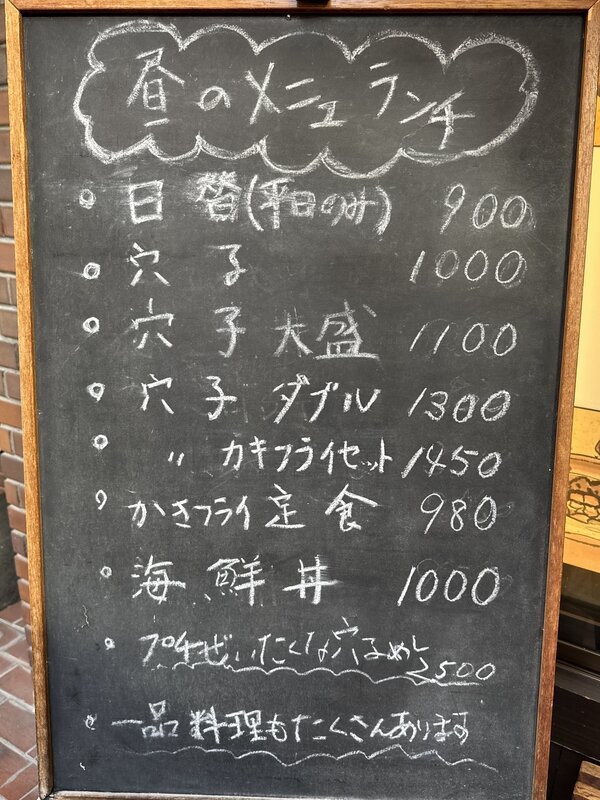 昼のメニュー ランチ
日替(平日のみ) 900
穴子 1000
穴子 大盛 1100
穴子 ダブル 1300
〃 カキフライセット 1450
かきフライ定食 980
海鮮丼 1000
プチぜいたくな穴子めし 2500
一品料理もたくさんあります